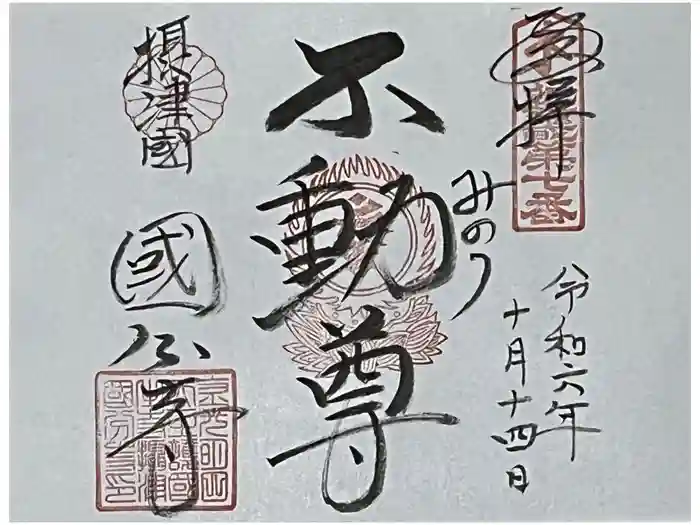 奉拝
摂津第七番
令和六年
十月十四日
みのり
不動尊
摂津國
國分寺